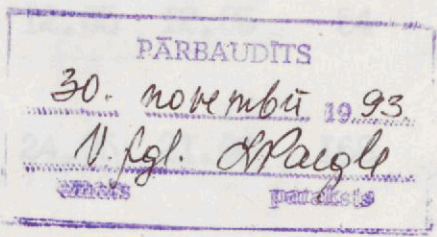 PĀRBAUDĪTS
30. novembrī 1993.
V. fgl. Paegle
amats paraksts